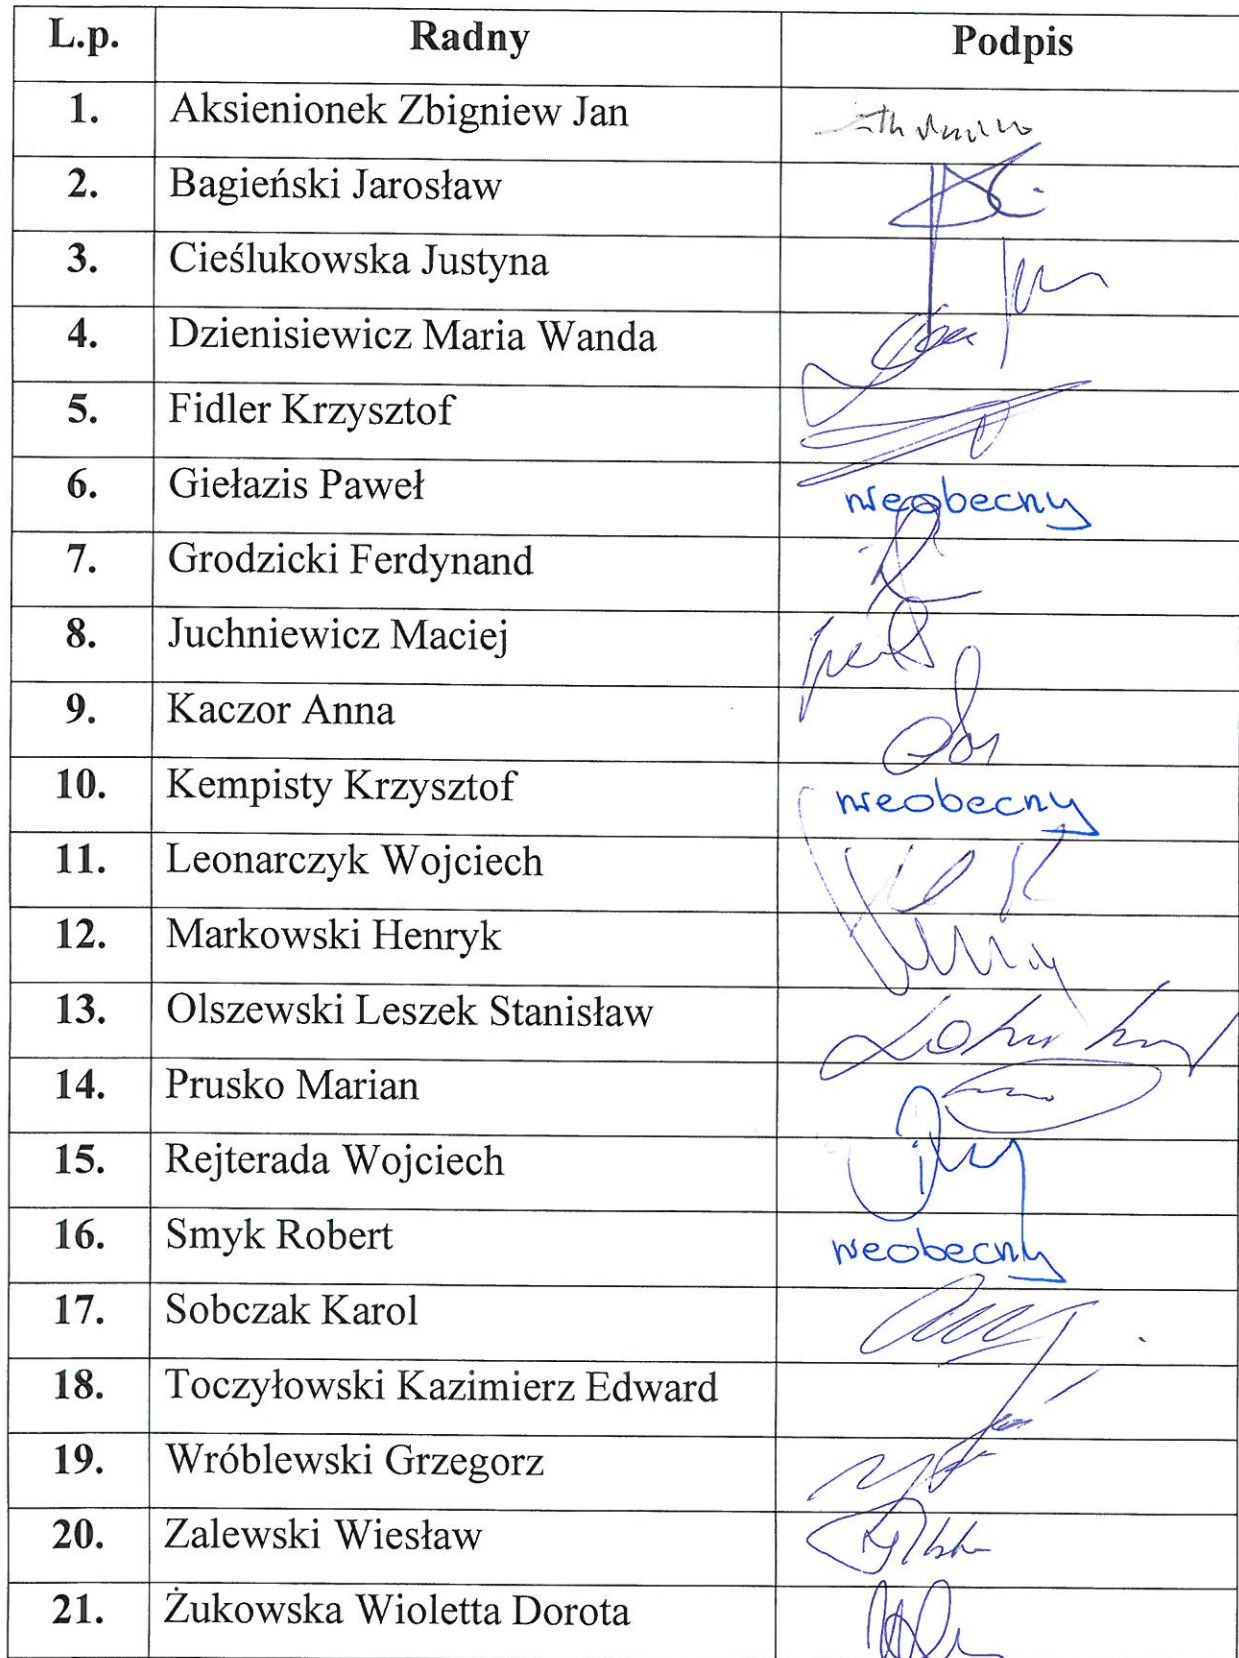 L.p. Radny Podpis
1. Aksienionek Zbigniew Jan
2. Bagieński Jarosław
3. Cieślukowska Justyna
4. Dzienisiewicz Maria Wanda
5. Fidler Krzysztof
6. Giełazis Paweł nieobecny
7. Grodzicki Ferdynand
8. Juchniewicz Maciej
9. Kaczor Anna
10. Kempisty Krzysztof nieobecny
11. Leonarczyk Wojciech
12. Markowski Henryk
13. Olszewski Leszek Stanisław
14. Prusko Marian
15. Rejterada Wojciech
16. Smyk Robert nieobecny
17. Sobczak Karol
18. Toczyłowski Kazimierz Edward
19. Wróblewski Grzegorz
20. Zalewski Wiesław
21. Żukowska Wioletta Dorota